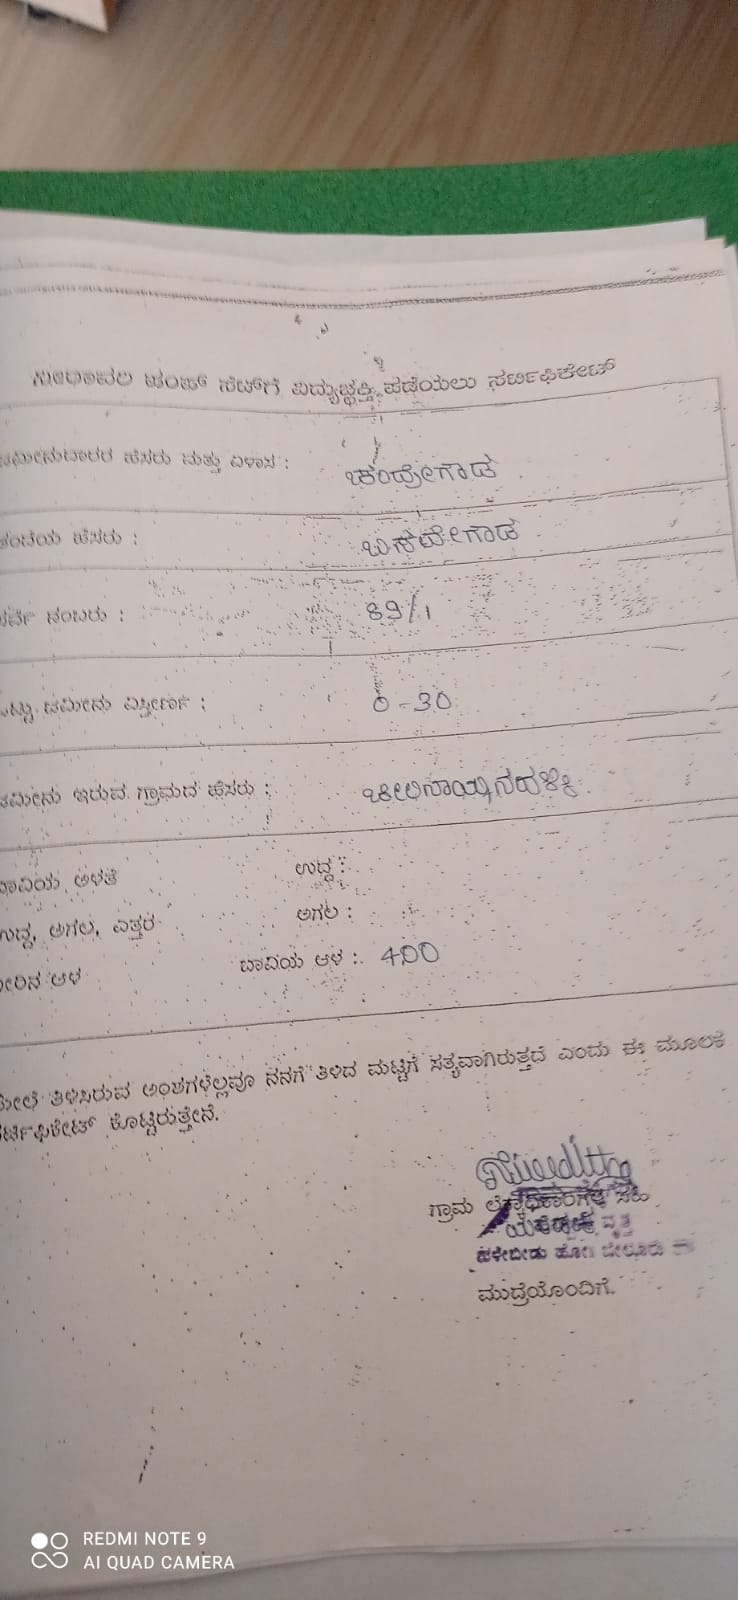 ನೀರಾವರಿ ಪಂಪ್ ಸೆಟ್‌ಗೆ ವಿದ್ಯುಚ್ಛಕ್ತಿ ಪಡೆಯಲು ಸರ್ಟಿಫಿಕೇಟ್
ಜಮೀನುದಾರರ ಹೆಸರು ಮತ್ತು ವಿಳಾಸ : ಚಂದ್ರೇಗೌಡ
ತಂದೆಯ ಹೆಸರು :
ಸರ್ವೆ ನಂಬರು : 89/1
ಒಟ್ಟು ಜಮೀನು ವಿಸ್ತೀರ್ಣ : 0-30
ಜಮೀನು ಇರುವ ಗ್ರಾಮದ ಹೆಸರು :
ಬಾವಿಯ ಅಳತೆ ಉದ್ದ :
ಉದ್ದ, ಅಗಲ, ಎತ್ತರ ಅಗಲ :
ನೀರಿನ ಆಳ ಬಾವಿಯ ಆಳ : 400
ಮೇಲೆ ತಿಳಿಸಿರುವ ಅಂಶಗಳೆಲ್ಲವೂ ನನಗೆ ತಿಳಿದ ಮಟ್ಟಿಗೆ ಸತ್ಯವಾಗಿರುತ್ತದೆ ಎಂದು ಈ ಮೂಲಕ
ಸರ್ಟಿಫಿಕೇಟ್ ಕೊಟ್ಟಿರುತ್ತೇನೆ.
ಗ್ರಾಮ ಲೆಕ್ಕಾಧಿಕಾರಿಗಳ ಸಹಿ
ವೃತ್ತ
ಹಳೇಬೀಡು ಹೋ॥ ಬೇಲೂರು
ಮುದ್ರೆಯೊಂದಿಗೆ.
REDMI NOTE 9
AI QUAD CAMERA